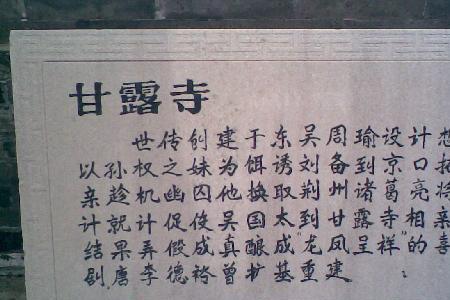 甘露寺
世传创建于东吴周瑜设计想
以孙权之妹为饵诱刘备到京口招
亲趁机幽囚他换取荆州诸葛亮将
计就计促使吴国太到甘露寺相亲
结果弄假成真酿成“龙凤呈祥”的喜
剧唐李德裕曾扩基重建